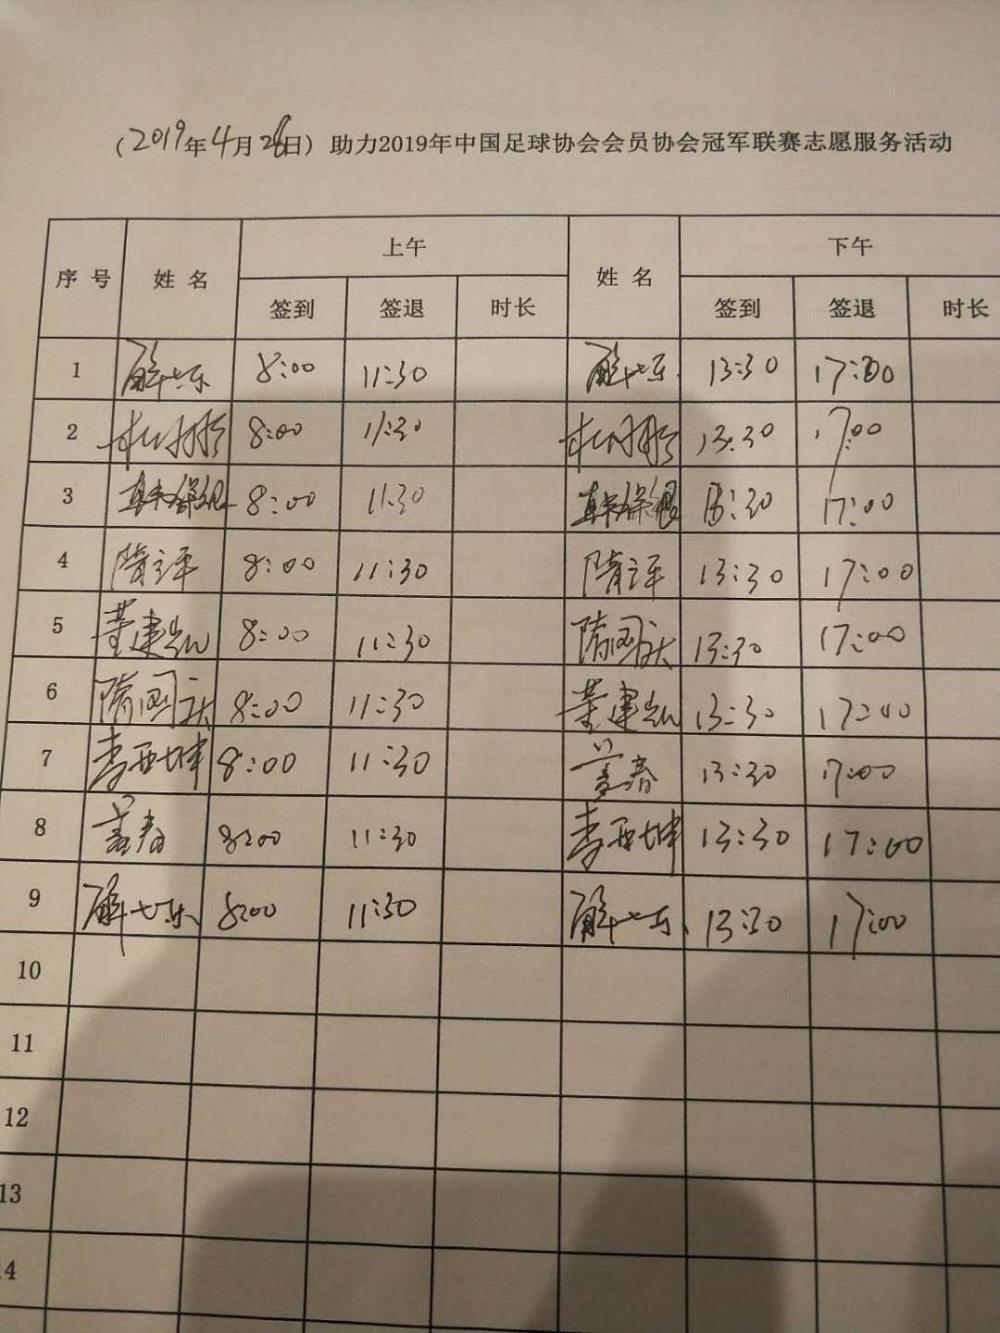 (2019年4月28日) 助力2019年中国足球协会会员协会冠军联赛志愿服务活动
序号 姓名 上午 姓名 下午
签到 签退 时长 签到 签退 时长
1 8:00 11:30 13:30 17:00
2 8:00 11:30 13:30 17:00
3 韩保银 8:00 11:30 韩保银 13:30 17:00
4 隋立平 8:00 11:30 隋立平 13:30 17:00
5 董建凯 8:00 11:30 隋国庆 13:30 17:00
6 隋国庆 8:00 11:30 董建凯 13:30 17:00
7 李亚坤 8:00 11:30 董春 13:30 17:00
8 董春 8:00 11:30 李亚坤 13:30 17:00
9 8:00 11:30 13:30 17:00
10
11
12
13
14